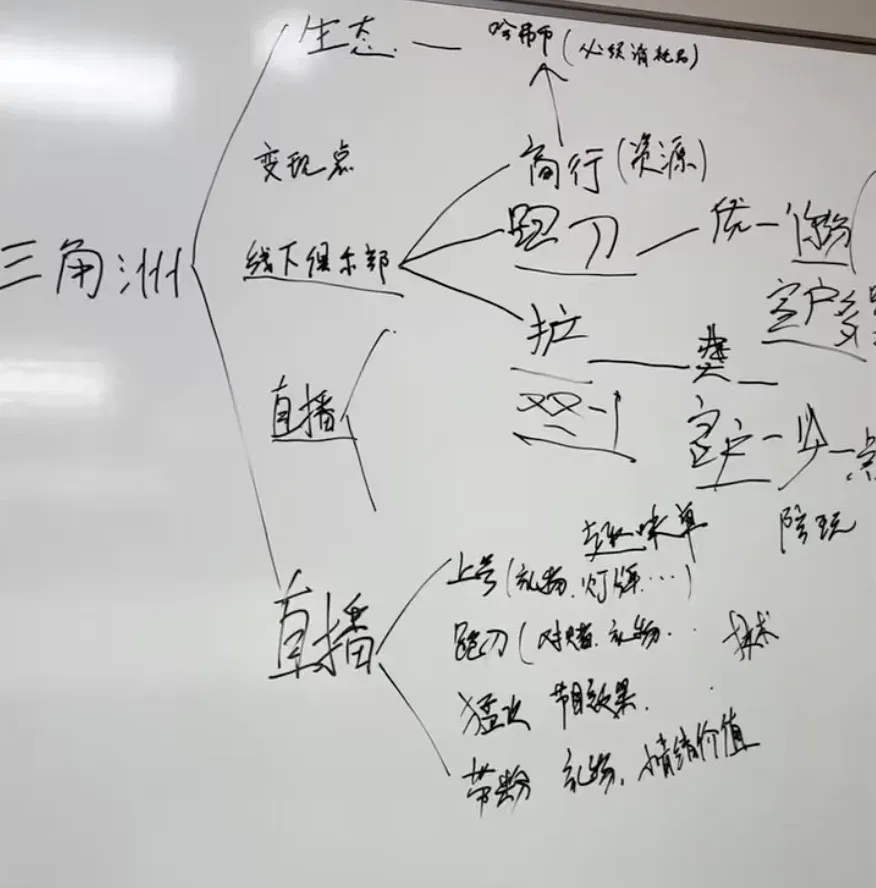 生态 — 哈弗币(必须消耗品)
变现点
商行(资源)
三角洲
线下俱乐部
跑刀 — 优 —
客户多
护
直播
客户一少一点
趣味单
陪玩
上号(礼物、灯牌…)
直播
跑刀(对赌、礼物..
技术
猛攻 节目效果.
带粉 礼物、情绪价值